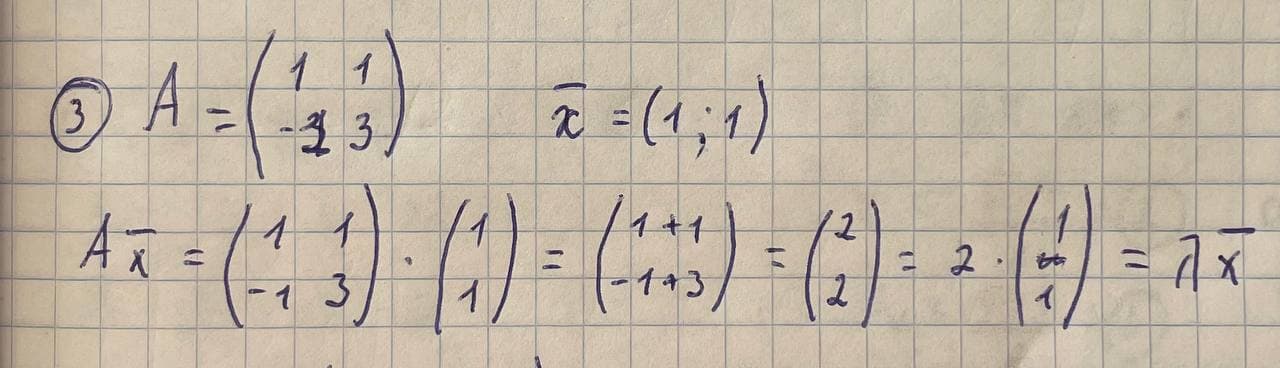 ③ A = (1 1; -1 3) x̄ = (1 ; 1)
A x̄ = (1 1; -1 3) · (1; 1) = (1+1; -1+3) = (2; 2) = 2 · (1; 1) = λ x̄